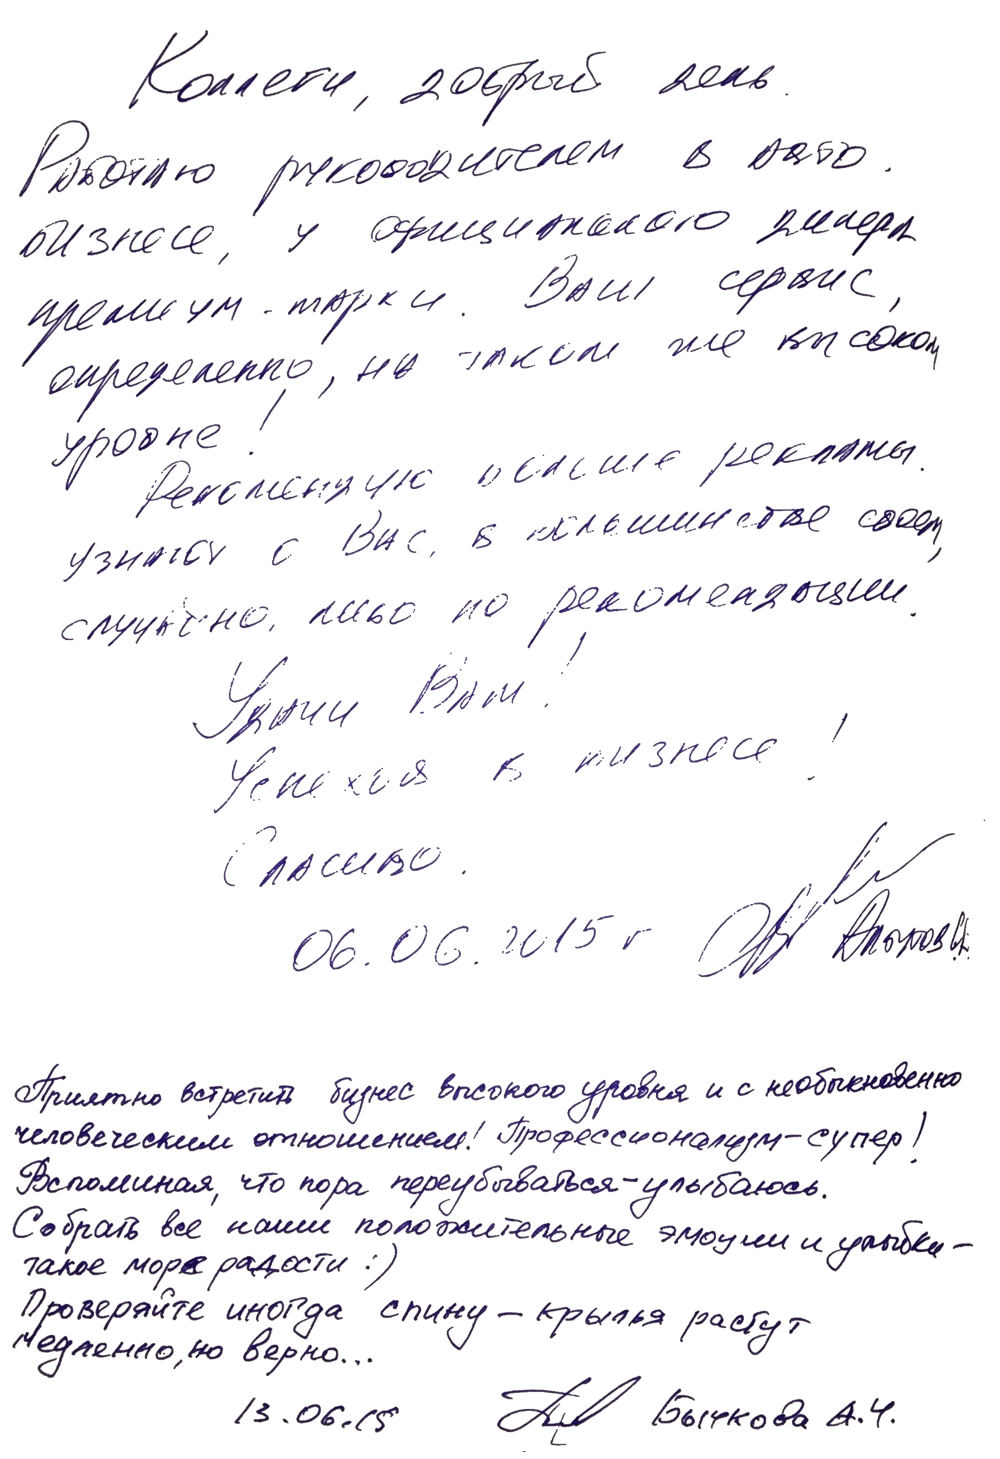 Коллеги, добрый день.
Работаю руководителем в авто.
бизнесе, у официального дилера
премиум-марки. Ваш сервис,
определенно, на таком же высоком
уровне!
Рекомендую больше рекламы.
узнают о Вас, в большинстве своем,
случайно, либо по рекомендации.
Удачи Вам!
Успехов в бизнесе!
Спасибо.
06.06.2015 г
Приятно встретить бизнес высокого уровня и с необыкновенно
человеческим отношением! Профессионализм-супер!
Вспоминая, что пора переубываться-улыбаюсь.
Собрать все наши положительные эмоции и улыбки-
такое море радости :)
Проверяйте иногда спину - крылья растут
медленно, но верно...
13.06.15 Бычкова А.Ч.